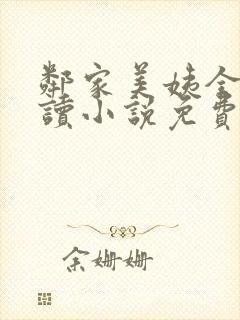 鄰家美姨全
讀小說免費
余姗姗